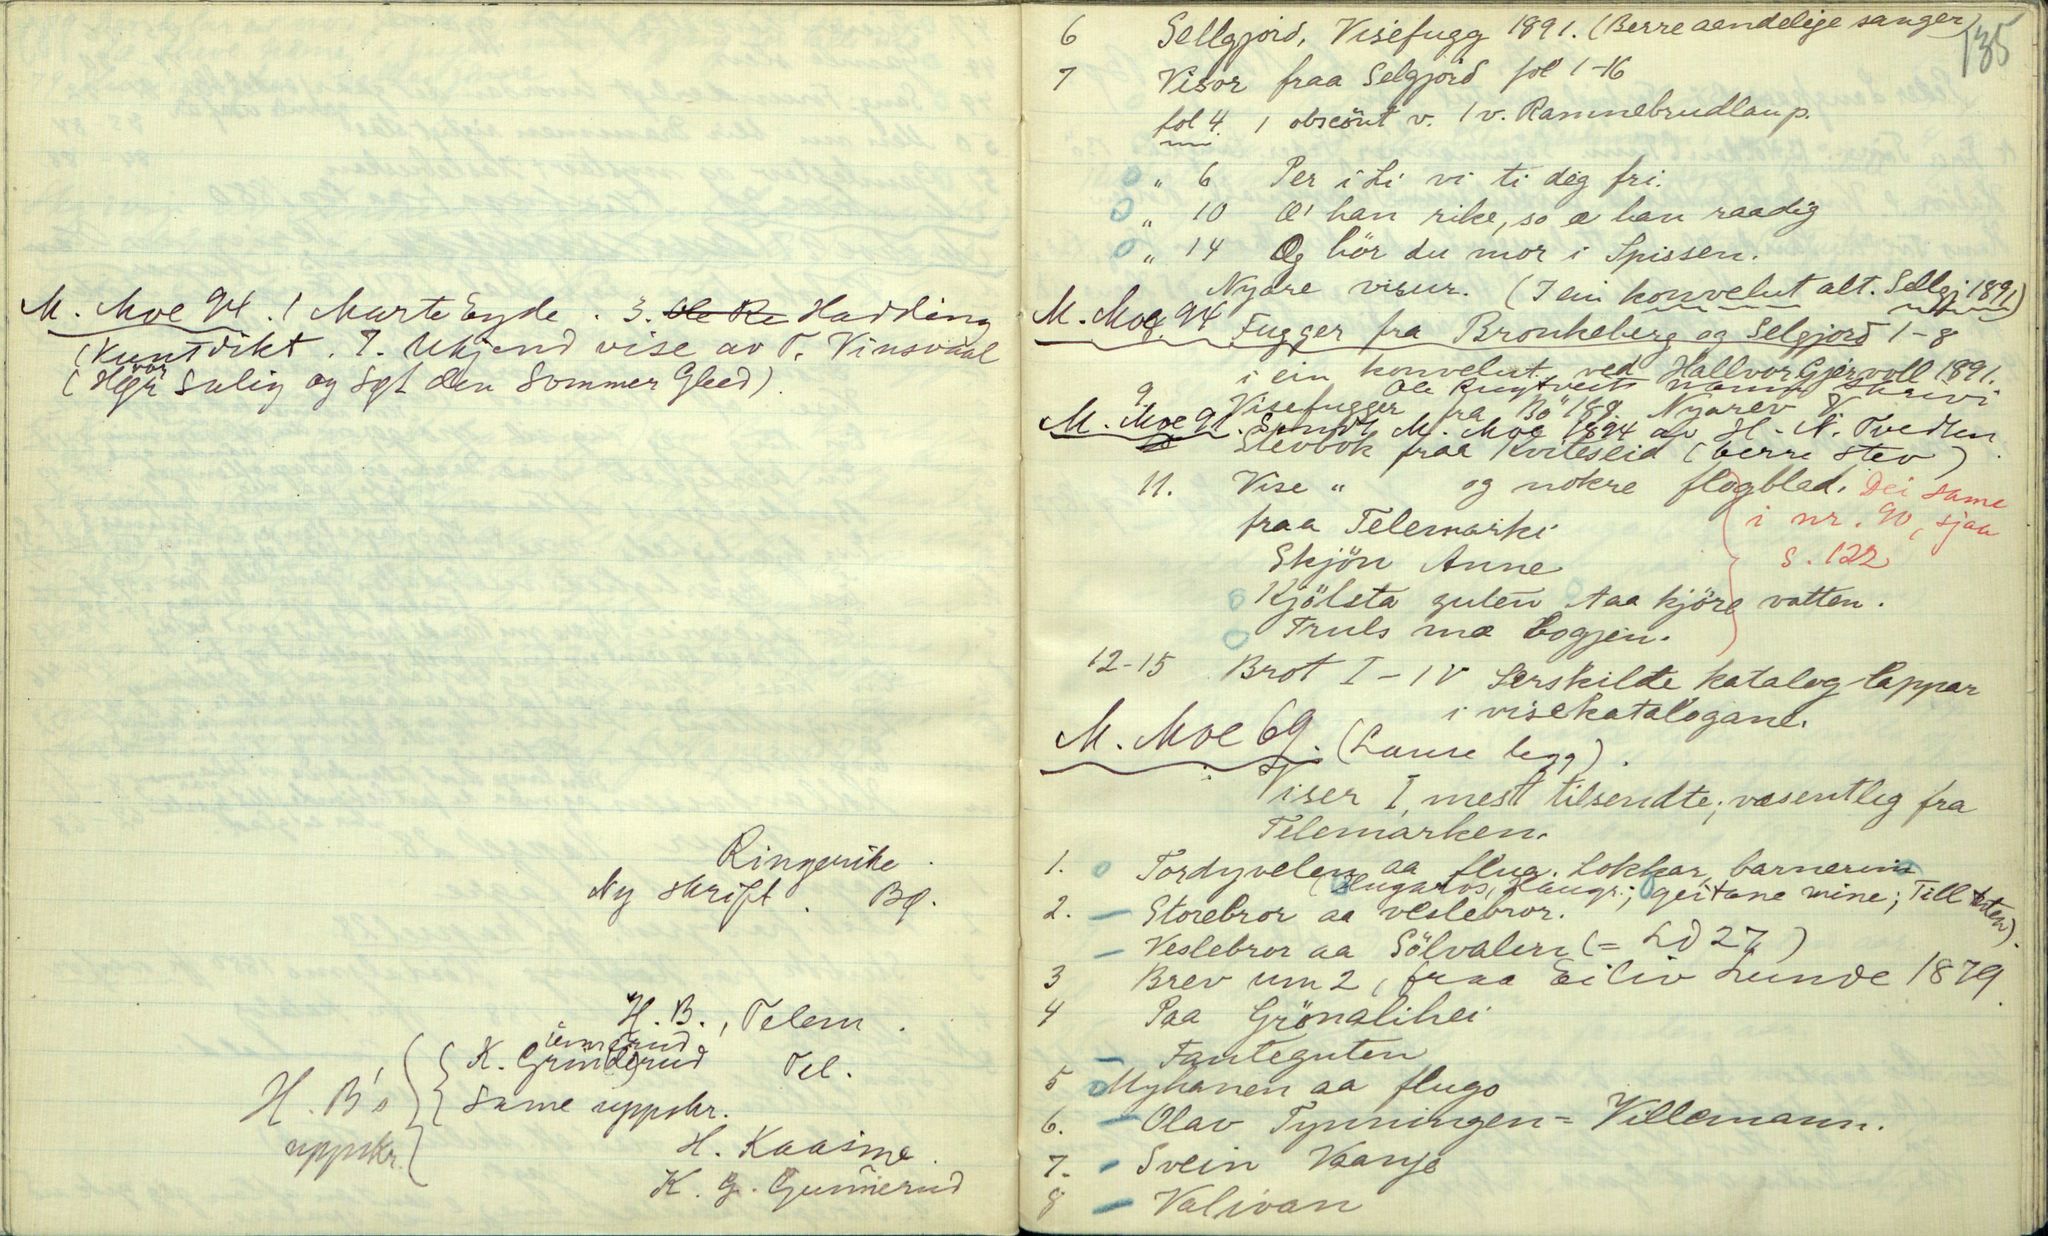 M. Moe 94. 1 Marte Eyde. 3. Hadding
(Kunstdikt. 7. Ukjend vise av T. Vinsvaal
(Hvor Salig og Sgt den Sommer Glæd).
Ringerike.
Ny skrift. Bø.
H. B., Telem.
K. Grinderud Tel.
Same uppskr.
H. B's
uppskr.
H. Kaasine.
K. G. Gunnerud
135
6 Sellgjord, Visefugg 1891. (Berre aendelige sanger)
7 Visor fraa Selgjord fol 1-16
fol 4. 1 obscönt v. 1 v. Ramnebrudlaup.
" 6 Per i Li vi ti deg fri.
" 10 Æ' han rike, so æ han raadig
" 14 Og hör du mor i Spissen.
Nyare visur. (I ein konvelut alt. Sellgj. 1891)
M. Moe 94 Fugger fra Brunkeberg og Selgjord 1-8
i ein konvelut ved Hallvor Gjervoll 1891.
9. Visefugger fra Bö 188 Nyarev V
M. Moe 91. Sendt M. Moe 1894 av H. N. Tvedten
Stevbok fraa Kviteseid (berre stev)
11. Vise " og nokre flogblad. Dei same
fraa Telemarki i nr. 90, sjaa
Skjön Anne s. 122
Kjölsta guten Aaa kjöre vatten.
Truls mæ bogjen.
12-15 Brot I-IV Serskilde katalog-lappar
i visekatalogane.
M. Moe 69. (Lause legg).
Viser I, mest tilsendte; væsentleg fra
Telemarken.
1. Tordyvelen aa flua. Lokkar, barnerim
(Haugaros, Haugr.; geitane mine; Till tuten).
2. Storebror aa veslebror.
Veslebror aa Sölvalein (= Ld 27)
3 Brev um 2, fraa Eiliv Lunde 1879.
4 Paa Grönalihei
Fanteguten
5 Myhanen aa flugo
6. Olav Tynningen = Villemann.
7. Svein Vaanje
8 Valivan